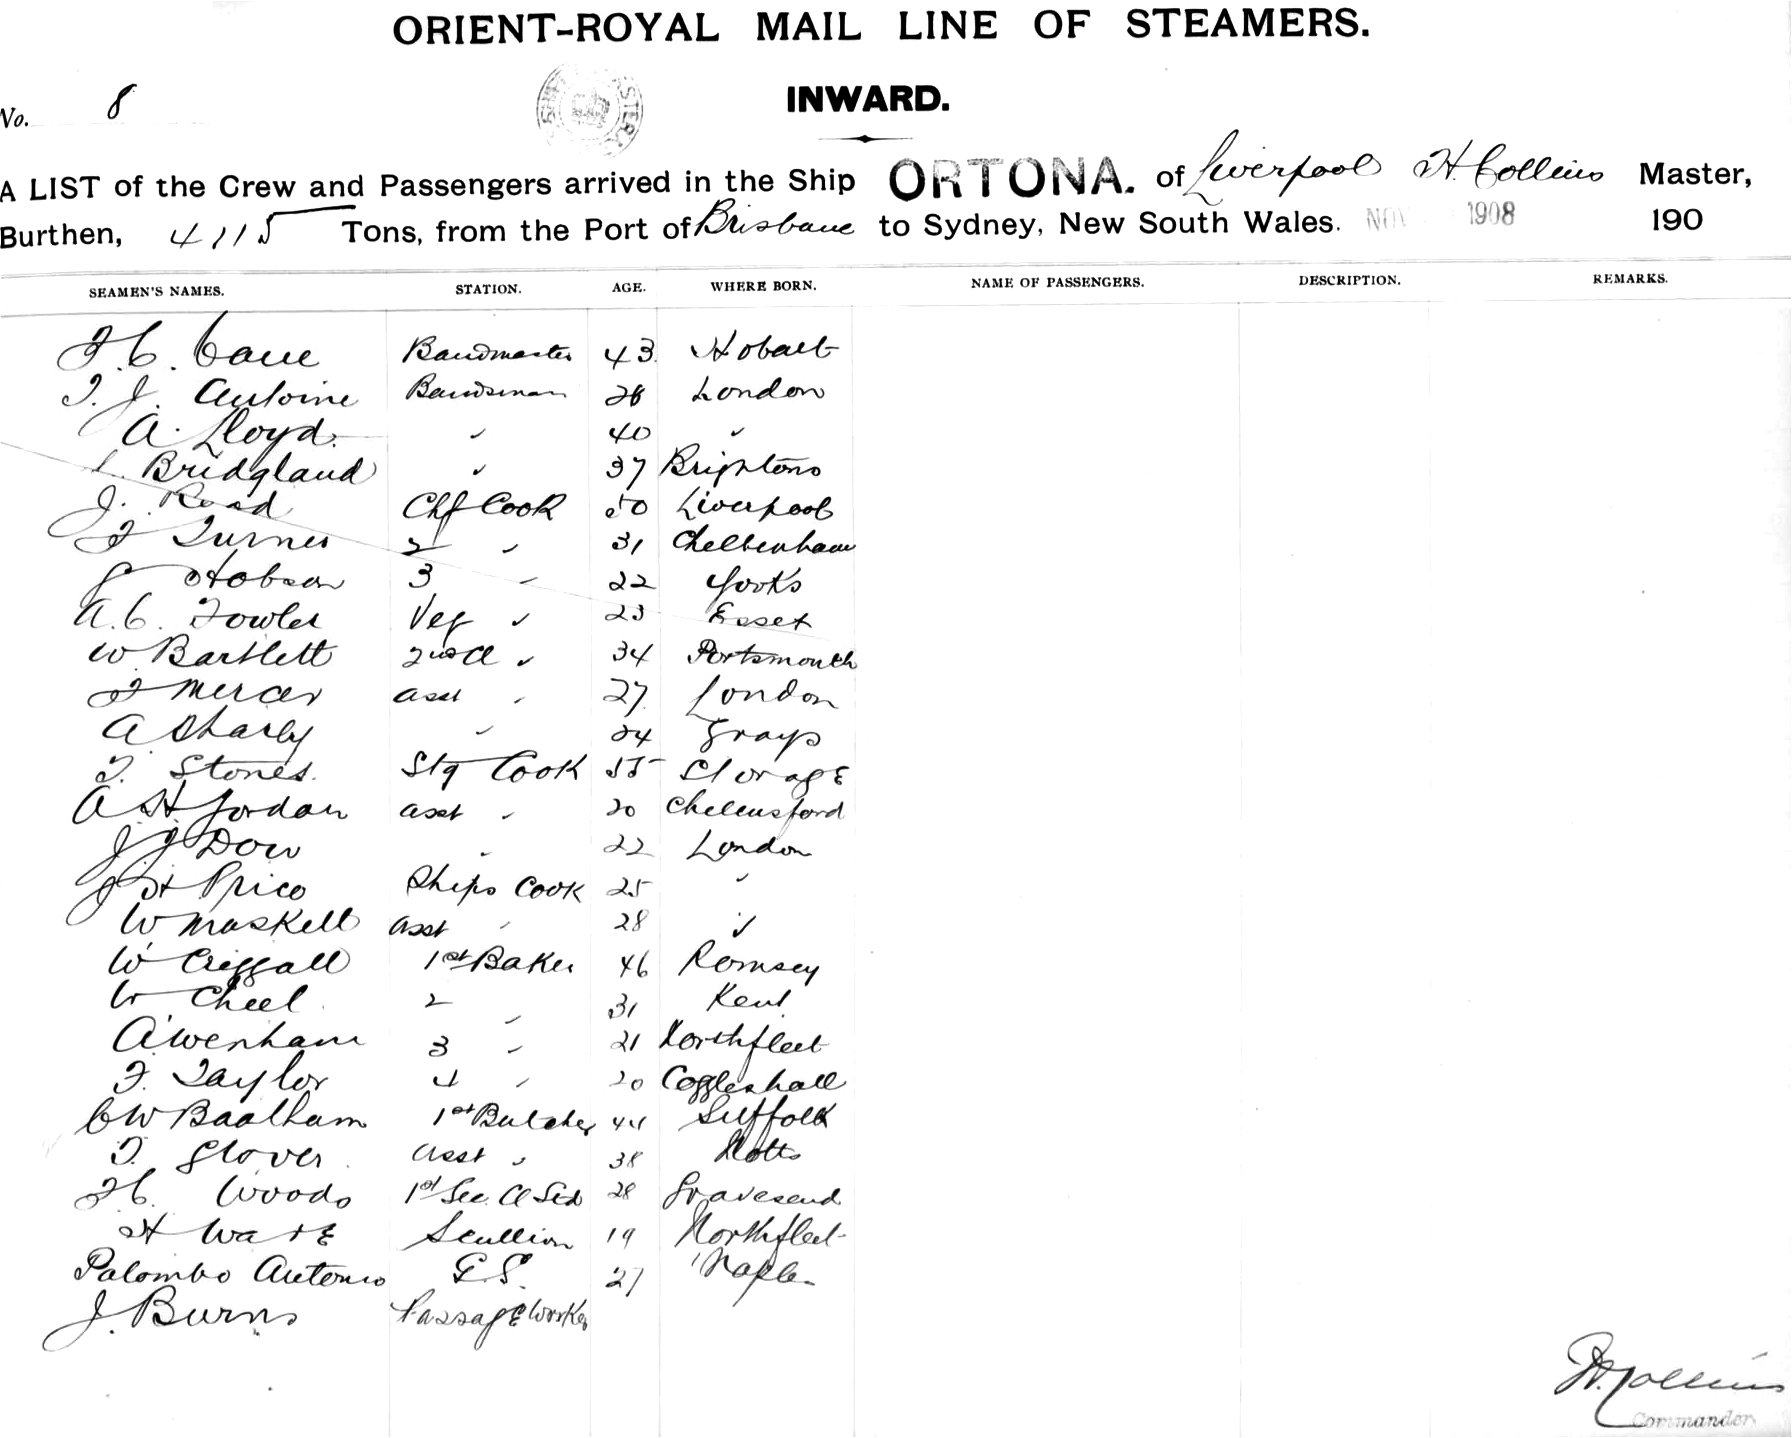 ORIENT-ROYAL MAIL LINE OF STEAMERS.
INWARD.
No. 8
A LIST of the Crew and Passengers arrived in the Ship ORTONA. of Liverpool H. Collins Master,
Burthen, 4115 Tons, from the Port of Brisbane to Sydney, New South Wales. NOV 1908 190
SEAMEN'S NAMES. STATION. AGE. WHERE BORN. NAME OF PASSENGERS. DESCRIPTION. REMARKS.
F. C. Cane Bandmaster 43 Hobart
T. J. Antoine Bandsman 28 London
A. Lloyd. " 40 "
Bridgland " 37 Brighton
J. Read Chf Cook 50 Liverpool
F Turner 2 " 31 Cheltenham
J Hobson 3 " 22 Yorks
A. C. Fowler Veg " 23 Essex
W Bartlett 2nd Cl " 34 Portsmouth
F Mercer asst " 27 London
A Sharly " 24 Grays
T. Stones. Stg Cook 55
A H Jordan asst " 20 Chelmsford
J J Dow " 22 London
J H Price Ships Cook 25 "
W Maskell asst " 28 "
W 1st Baker 46 Romsey
W Cheel 2 " 31 Kent
A. Wenham 3 " 21 Northfleet
F. Taylor 4 " 20 Coggleshall
C W Baalham 1st Butcher 44 Suffolk
T. Glover asst " 38 Notts
F C. Woods 1st Sec. Cl Std 28 Gravesend
H Waite Scullion 19 Northfleet
Palombo Antonio G.S. 27 Naples
J. Burns Passage Worker
H. Collins
Commander